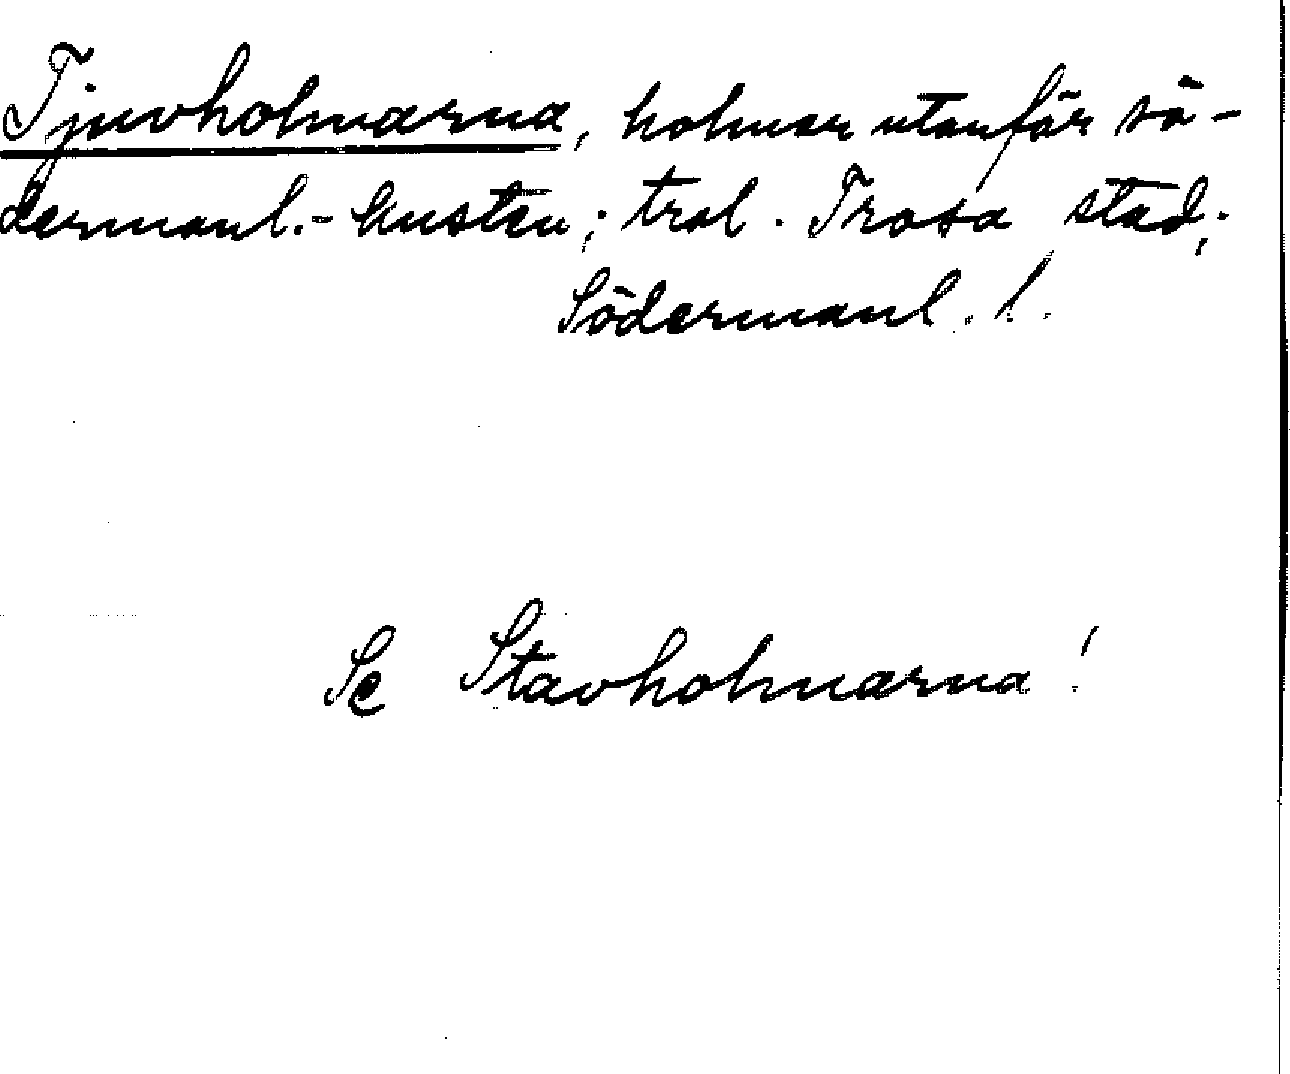 Tjuvholmarna, holmar utanför sö-
dermanl.-kusten; trol. Trosa stad;
Södermanl. l.
Se Stavholmarna!